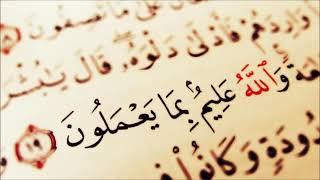 عَلَىٰ مَا تَصِفُونَ
وَارِدَهُمْ فَأَدْلَىٰ دَلْوَهُۥ ۖ قَالَ يَٰبُشْرَ
عَةً وَٱللَّهُ عَلِيمٌۢ بِمَا يَعْمَلُونَ ١٩
دُودَةٍ وَكَانُوا۟ فِ